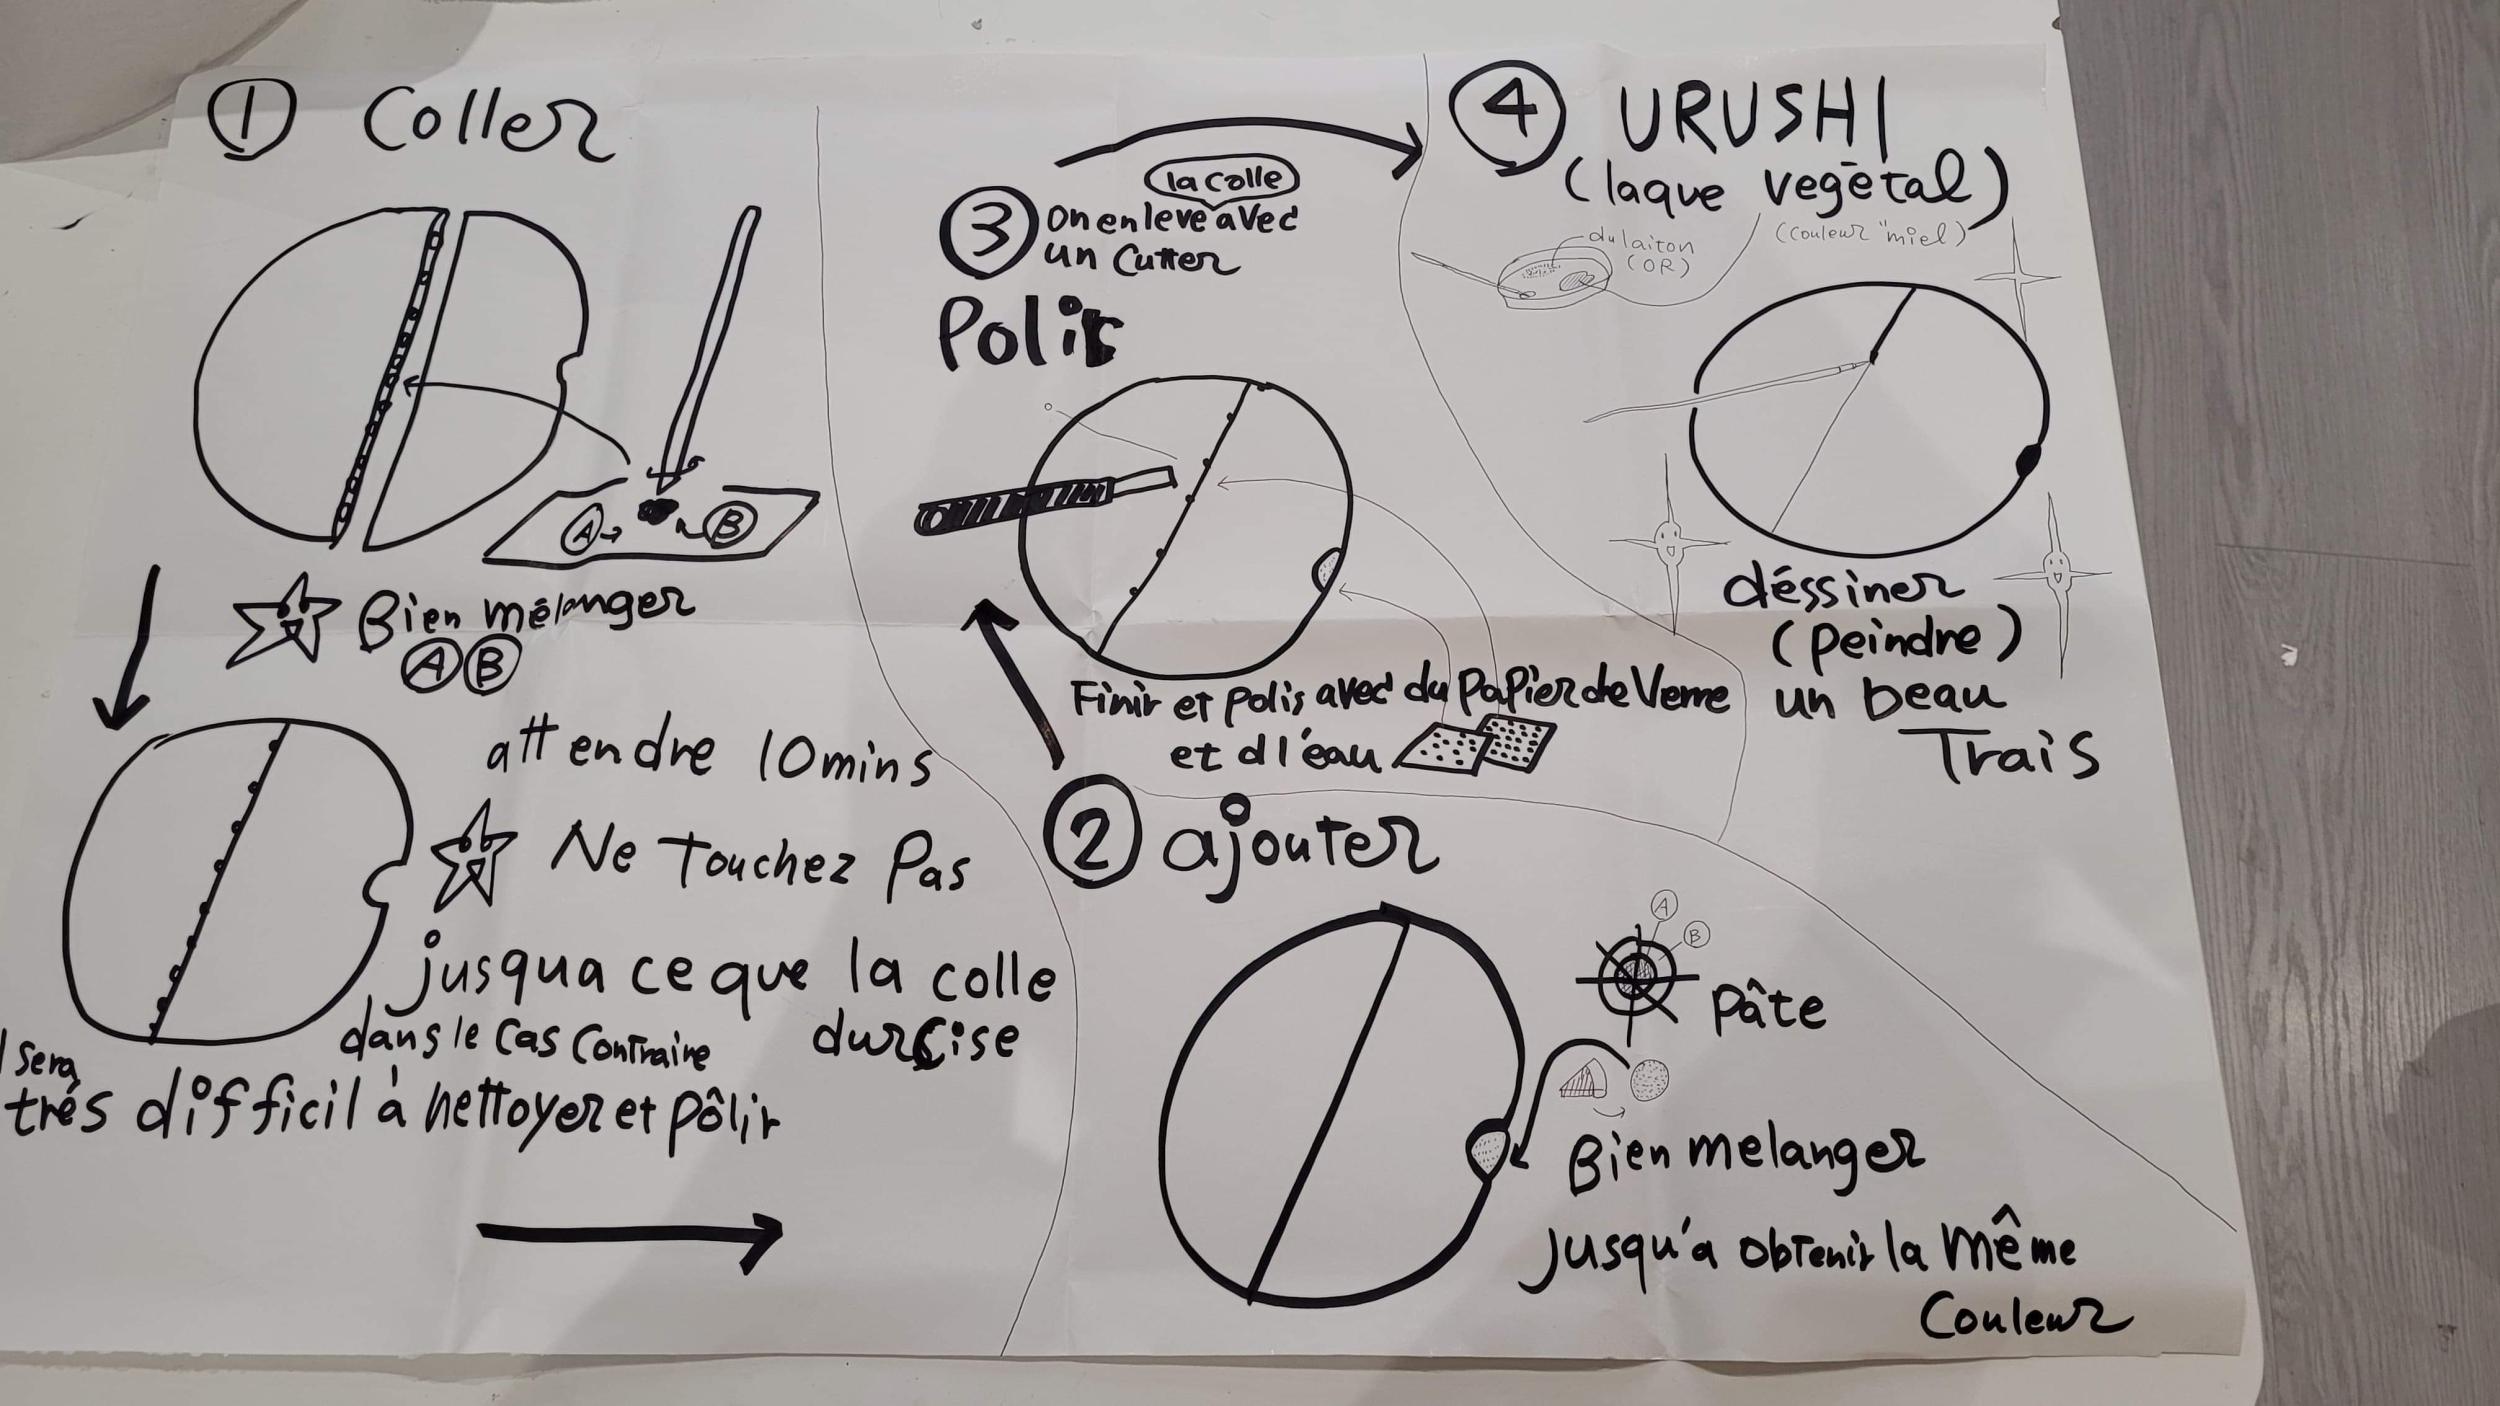 ① Coller
A B
Bien mélanger
A B
attendre 10mins
Ne Touchez Pas
jusqua ce que la colle
durcise
dans le cas contraire
sera
trés difficil à nettoyer et pôlir
② ajouter
A
B
pâte
Bien melanger
jusqu'a obtenir la même
couleur
③ on enleve avec
la colle
un cutter
Polir
Finir et polis avec du papier de Verre
et d l'eau
④ URUSHI
(laque vegētal)
(couleur "miel)
du laiton
(OR)
déssiner
(peindre)
un beau
Trais